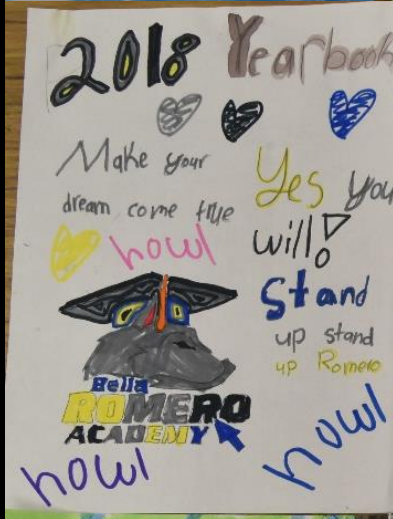 2018 Yearbook
Make your
dream come true
howl
Yes you
will!
Stand
up stand
up Romero
Bella
ROMERO
ACADEMY
howl
howl